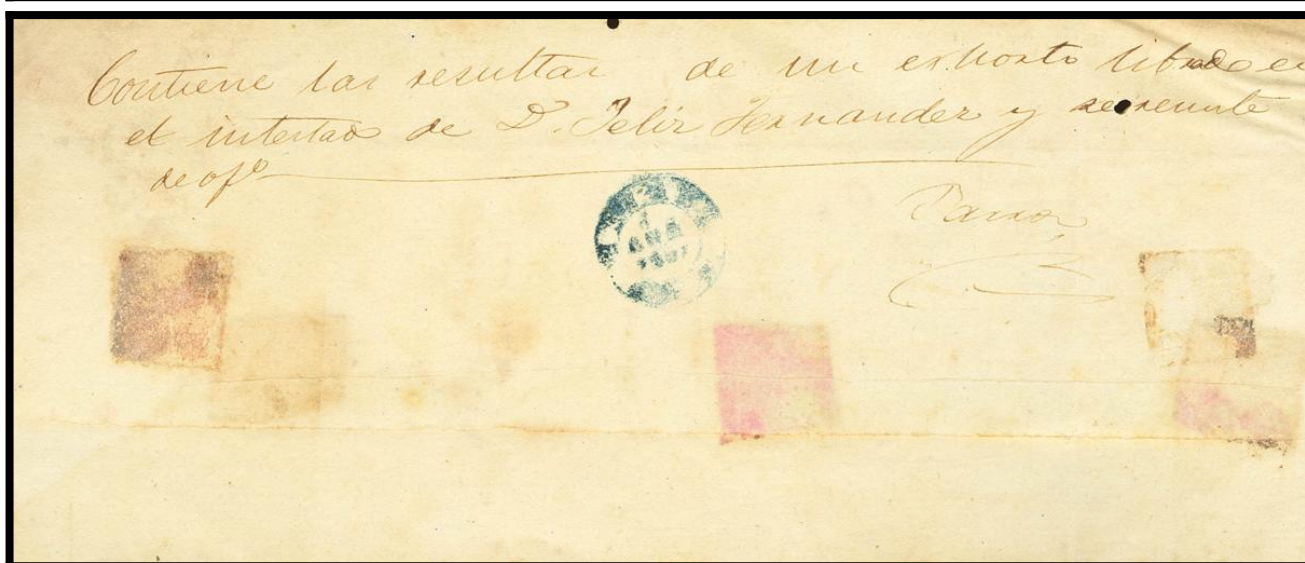 Contiene las resultas de un exhorto librado en
el intestado de D. Felix Fernandez y se remite
de ofº